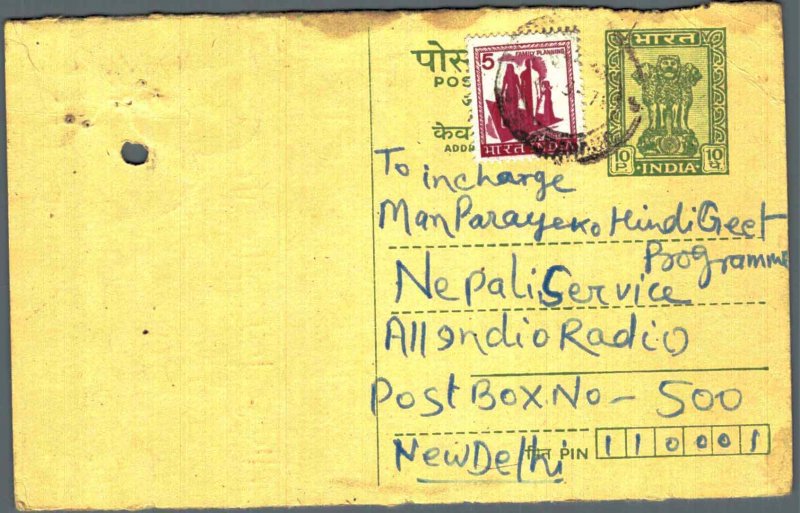 पोस
POS
5
FAMILY PLANNING
भारत INDIA
भारत
10 P.
10 पै.
INDIA
केव
ADD
To incharge
Man Parayeko Hindi Geet
Programme
Nepali Service
All India Radio
Post Box No - 500
New Delhi
पिन PIN 110001